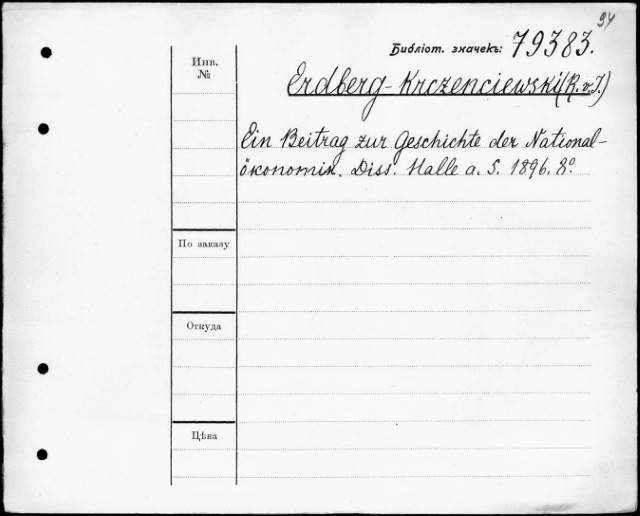 94
Библіот. значекъ: 79383.
Инв.
№
Erdberg-Krczenciewski (R. v. J.)
Ein Beitrag zur Geschichte der National-
ökonomik. Diss. Halle a. S. 1896. 8º
По заказу
Откуда
Цѣна